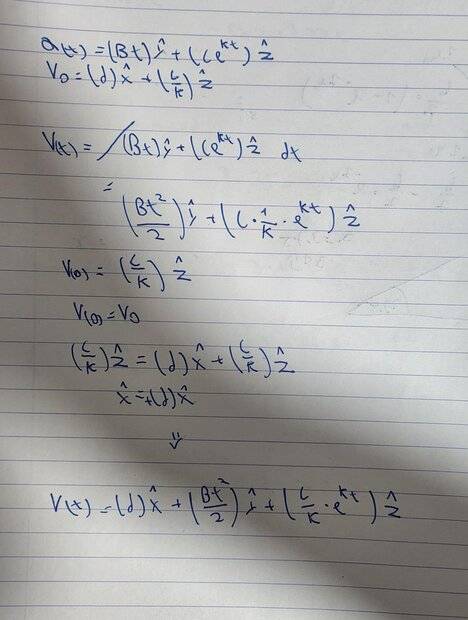 a(t) = (Bt)ŷ + (Ce^kt) ẑ
V₀ = (d)x̂ + (C/k) ẑ
V(t) = ∫(Bt)ŷ + (Ce^kt) ẑ dt
= (Bt²/2)ŷ + (C · 1/k · e^kt) ẑ
V(0) = (C/k) ẑ
V(0) = V₀
(C/k) ẑ = (d)x̂ + (C/k) ẑ
x̂ = +(d)x̂
⇓
V(t) = (d)x̂ + (Bt²/2)ŷ + (C/k · e^kt) ẑ